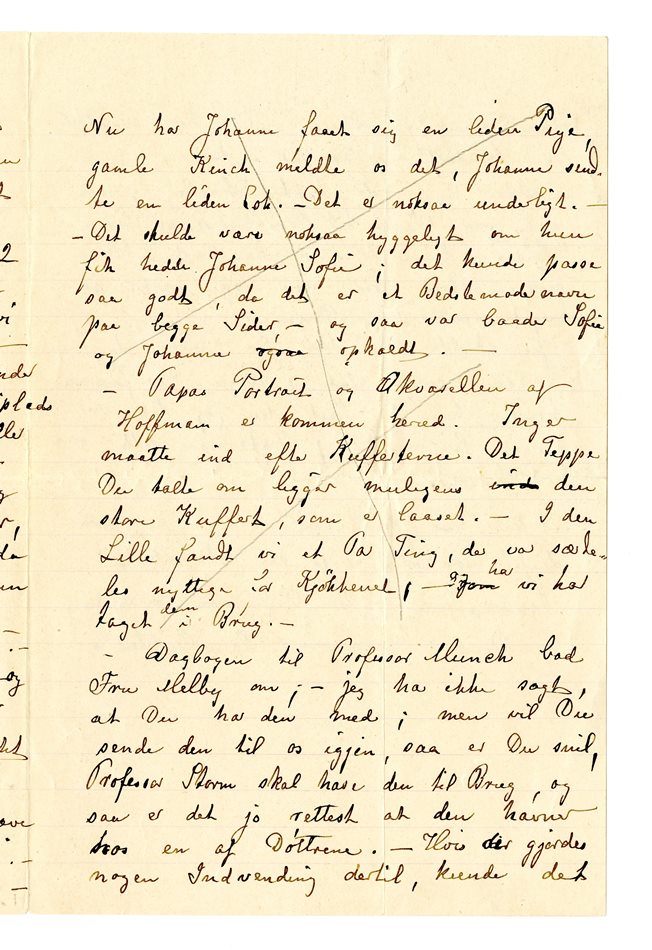 Nu har Johanne faaet sig en liden Pige,
gamle Kinck meldte os det, Johanne send-
te em liden Lok. – Det er noksaa underligt. –
– Det skulde være noksaa hyggeligt om hun
fik hedde Johanne Sofie; det kunde passe
saa godt, da det er et Bedstemodernavn
paa begge Sider – og saa var baade Sofie
og Johanne opkaldt. –
– Papas Portræt og Akvarellen af
Hoffmann er kommen herved. Inger
maatte ind efter Kufferterne. Det Teppe
Du talte om ligger muligens ind den
store Kuffert, som er laaset. – I den
Lille fandt vi et Par Ting, der var særde-
les nyttige for Kjökkenet, – ha vi har
taget dem i Brug. –
– Dagbogen til Professor Munch bad
Fru Melby om; – jeg har ikke sagt,
at Du har den med; men vil Du
sende den til os igjen, saa er Du snil,
Professor Storm skal have den til Brug, og
saa er det jo rettest at den havner
hos en af Döttrene. – Hvis der gjördes
nogen Indvending dertil, kunde det